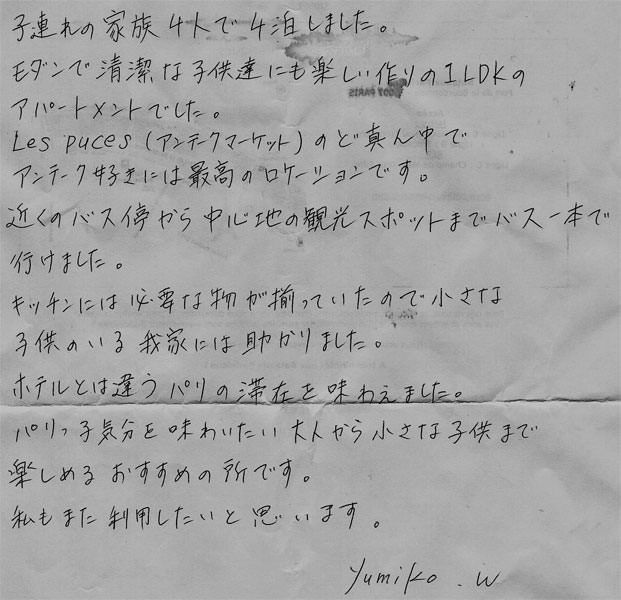 子連れの家族4人で4泊しました。
モダンで清潔な子供達にも楽しい作りの1LDKの
アパートメントでした。
Les puces (アンテークマーケット)のど真ん中で
アンテーク好きには最高のロケーションです。
近くのバス停から中心地の観光スポットまでバス一本で
行けました。
キッチンには必要な物が揃っていたので小さな
子供のいる我家には助かりました。
ホテルとは違うパリの滞在を味わえました。
パリっ子気分を味わいたい大人から小さな子供まで
楽しめるおすすめの所です。
私もまた利用したいと思います。
Yumiko.W